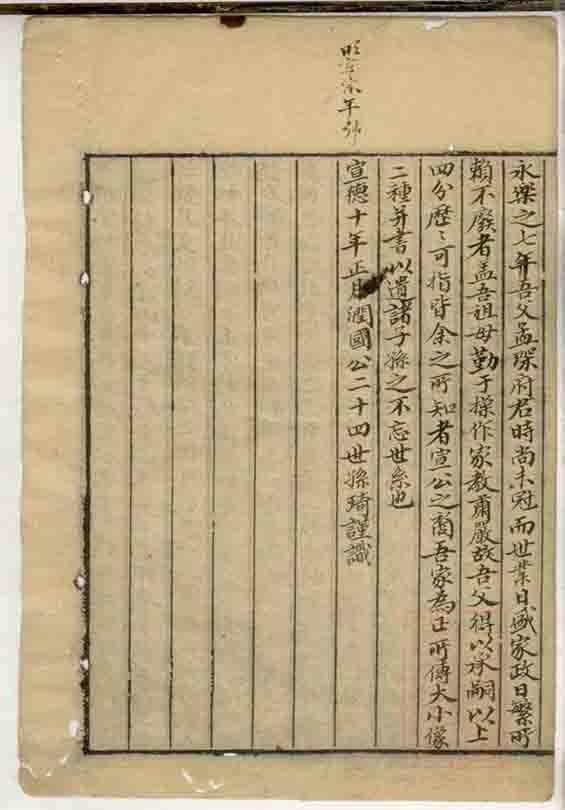 明宣宗年號
永樂之七年吾父孟琛府君時尚未冠而世業日盛家政日繁所
賴不廢者盖吾祖母勤于操作家教肅嚴故吾父得以承嗣以上
四分歷〻可指皆余之所知者宣公之裔吾家為正所傳大小像
二種并書以遺諸子孫之不忘世系也
宣德十年正月潤國公二十四世孫琦謹識